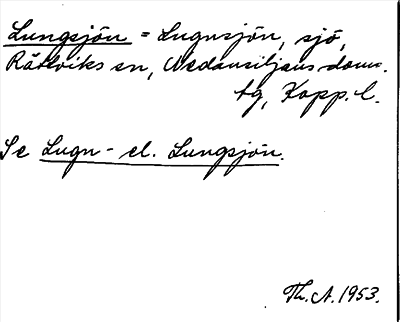 Lungsjön = Lugnsjön, sjö,
Rättviks sn, Nedansiljans doms.
tg, Kopp. l.
Se Lugn- el. Lungsjön.
Th. A. 1953.